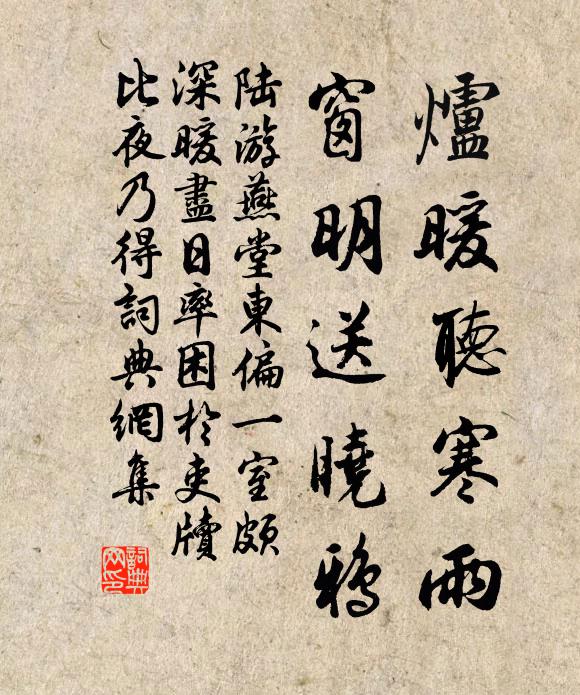 爐暖聽寒雨
窗明送曉鴉
陆游燕堂東偏一室頗
深暖盡日率困於吏牘
比夜乃得詞典網集
詞典
网印